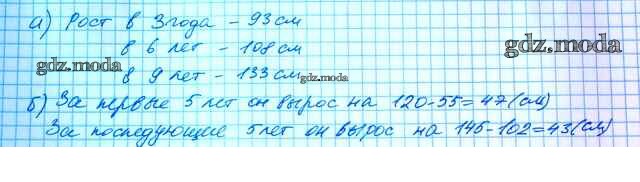 а) Рост в 3 года - 93 см
в 6 лет - 108 см
gdz.moda
gdz.moda
в 9 лет - 133 см
gdz.moda
б) За первые 5 лет он вырос на 120-55=47(см)
За последующие 5 лет он вырос на 145-102=43(см)